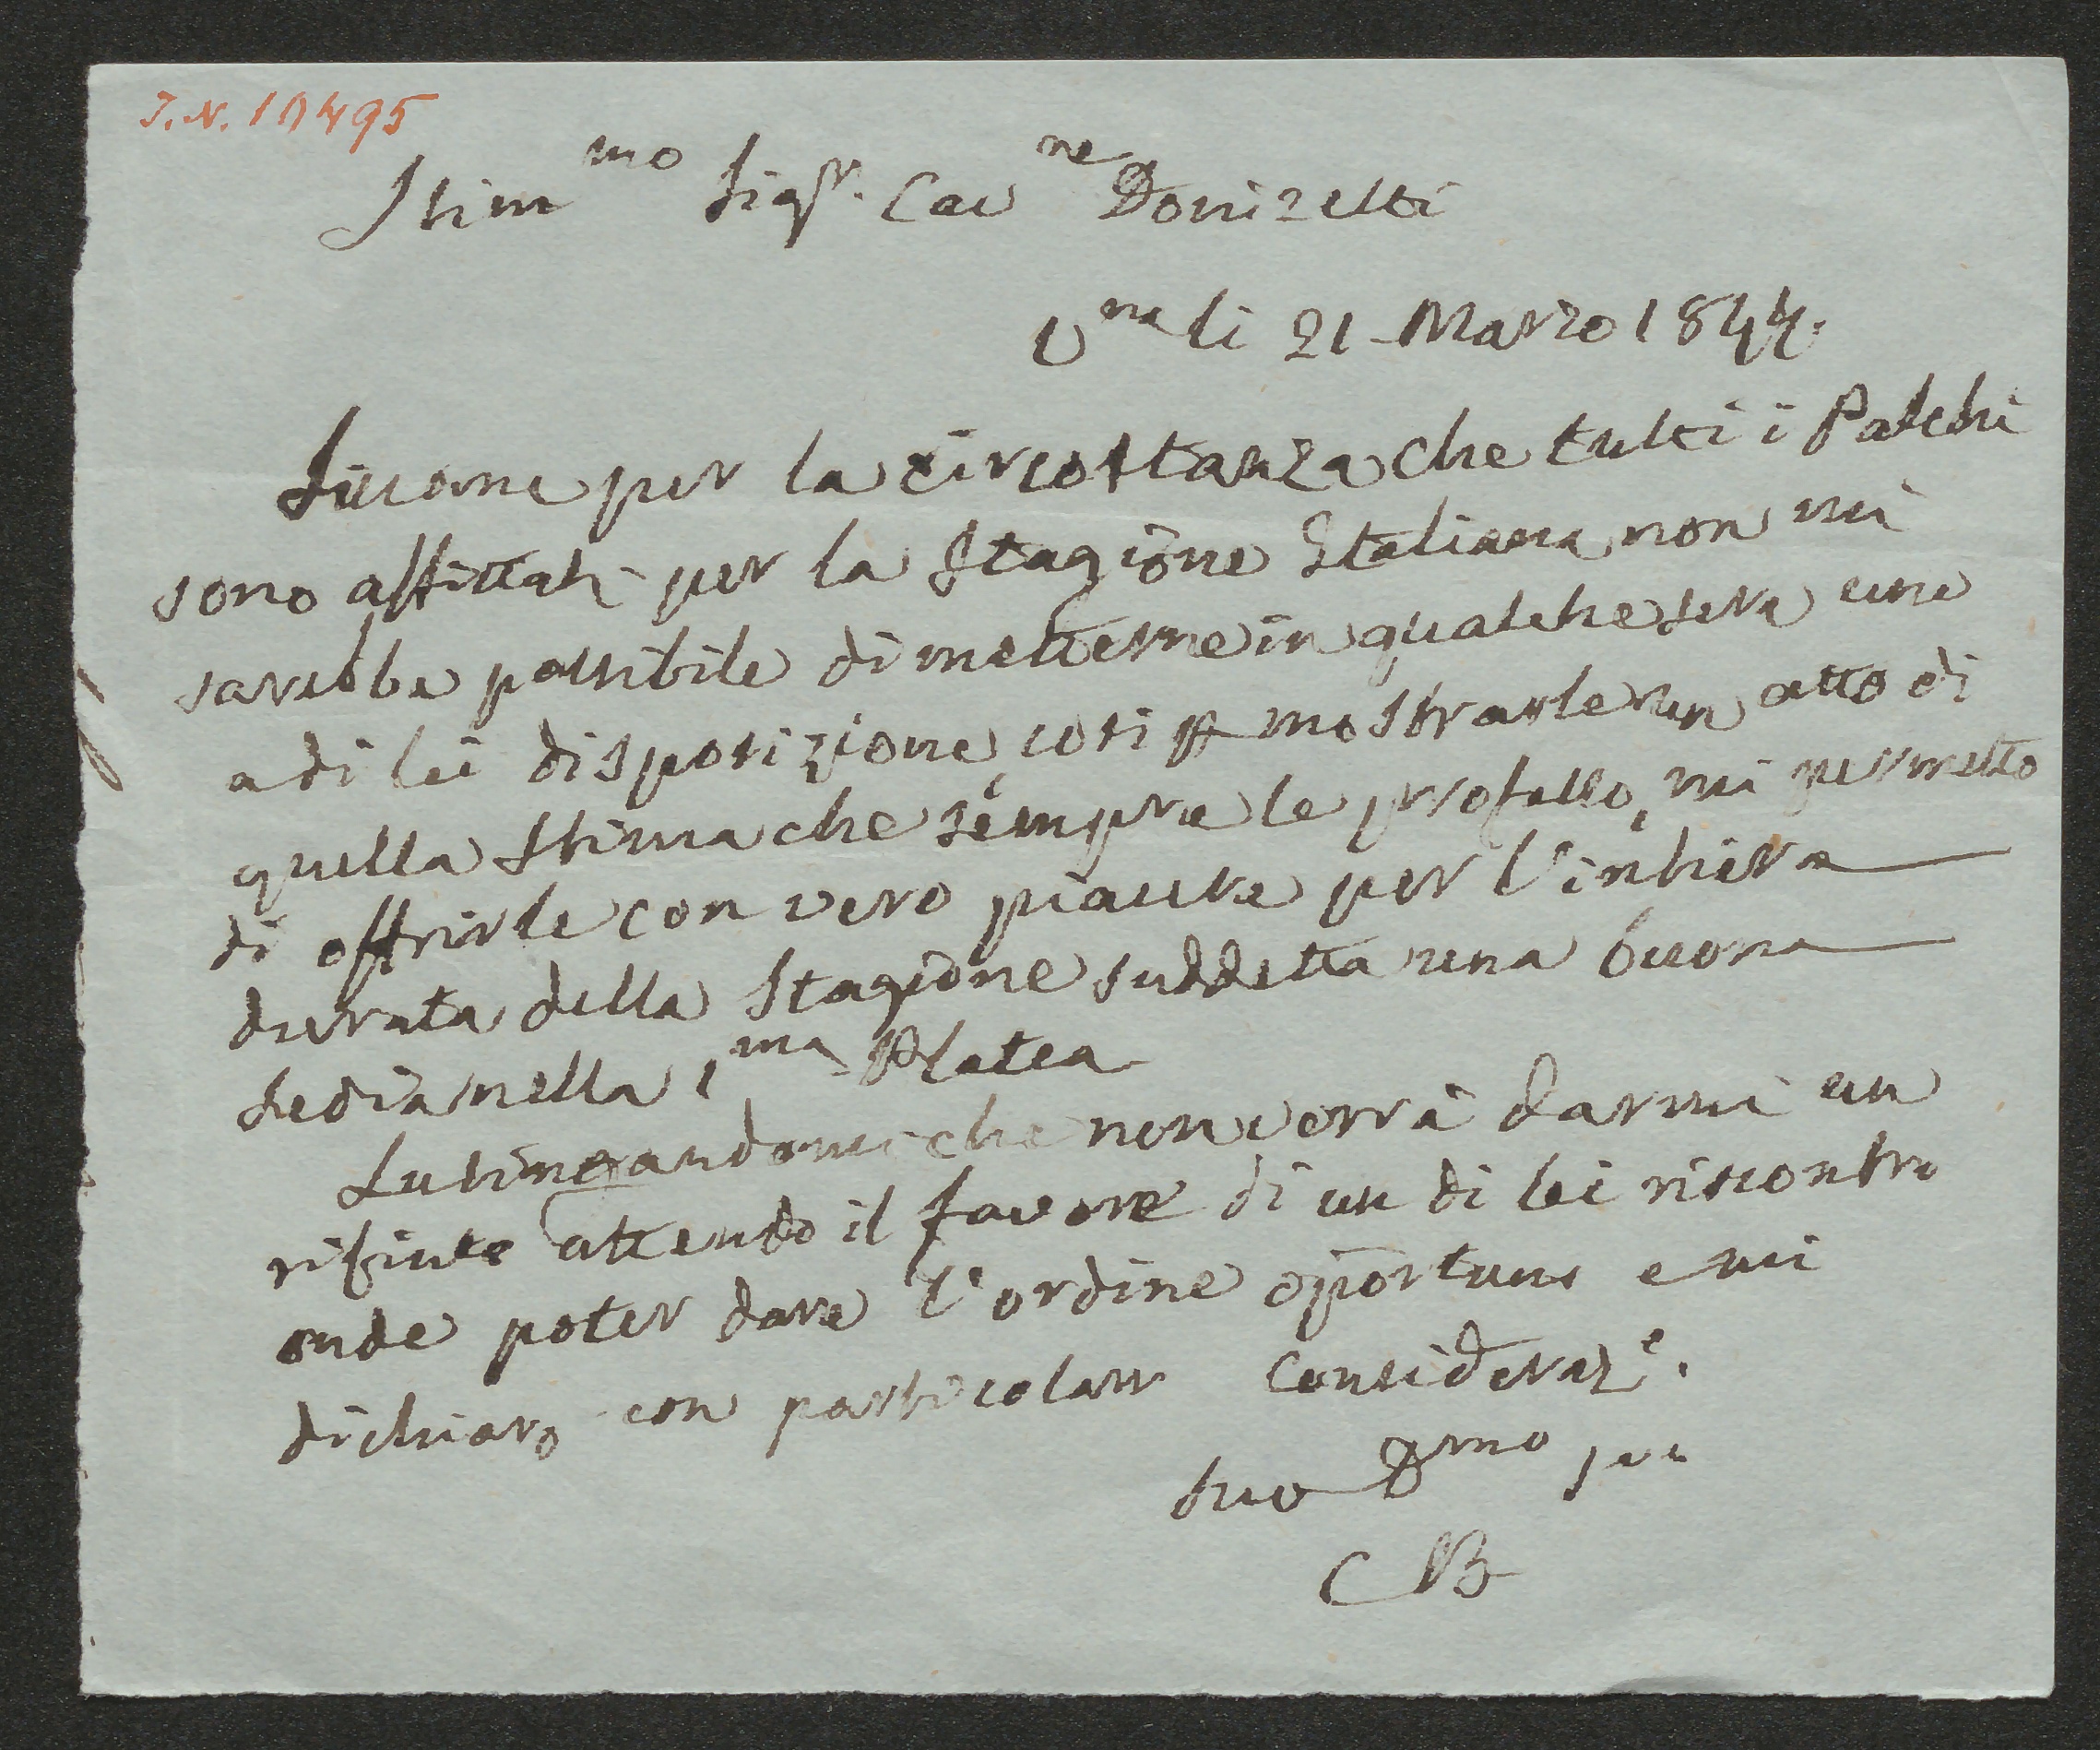 I.N. 10495
Stim mo Sigr. Cav ne Donizetti
V na li 21 Marzo 1844.
Siccome per la circostanza che tutti i Palchi
sono affittati per la Stagione Italiana non mi
sarebbe possibile di metterne in qualche sera uno
a di lei disposizione, così p mostrarle un atto di
quella stima che sempre le professo, mi permetto
di offrirle con vero piacere per l'intiera
durata della Stagione suddetta una buona
Sedia nella 1 ma Platea
Lusingandomi che non vorrà darmi un
rifiuto attendo il favore di un di lei riscontro
onde poter dare l'ordine oportuno e mi
dichiaro con particolare Consideraze.
Suo D mo
CB